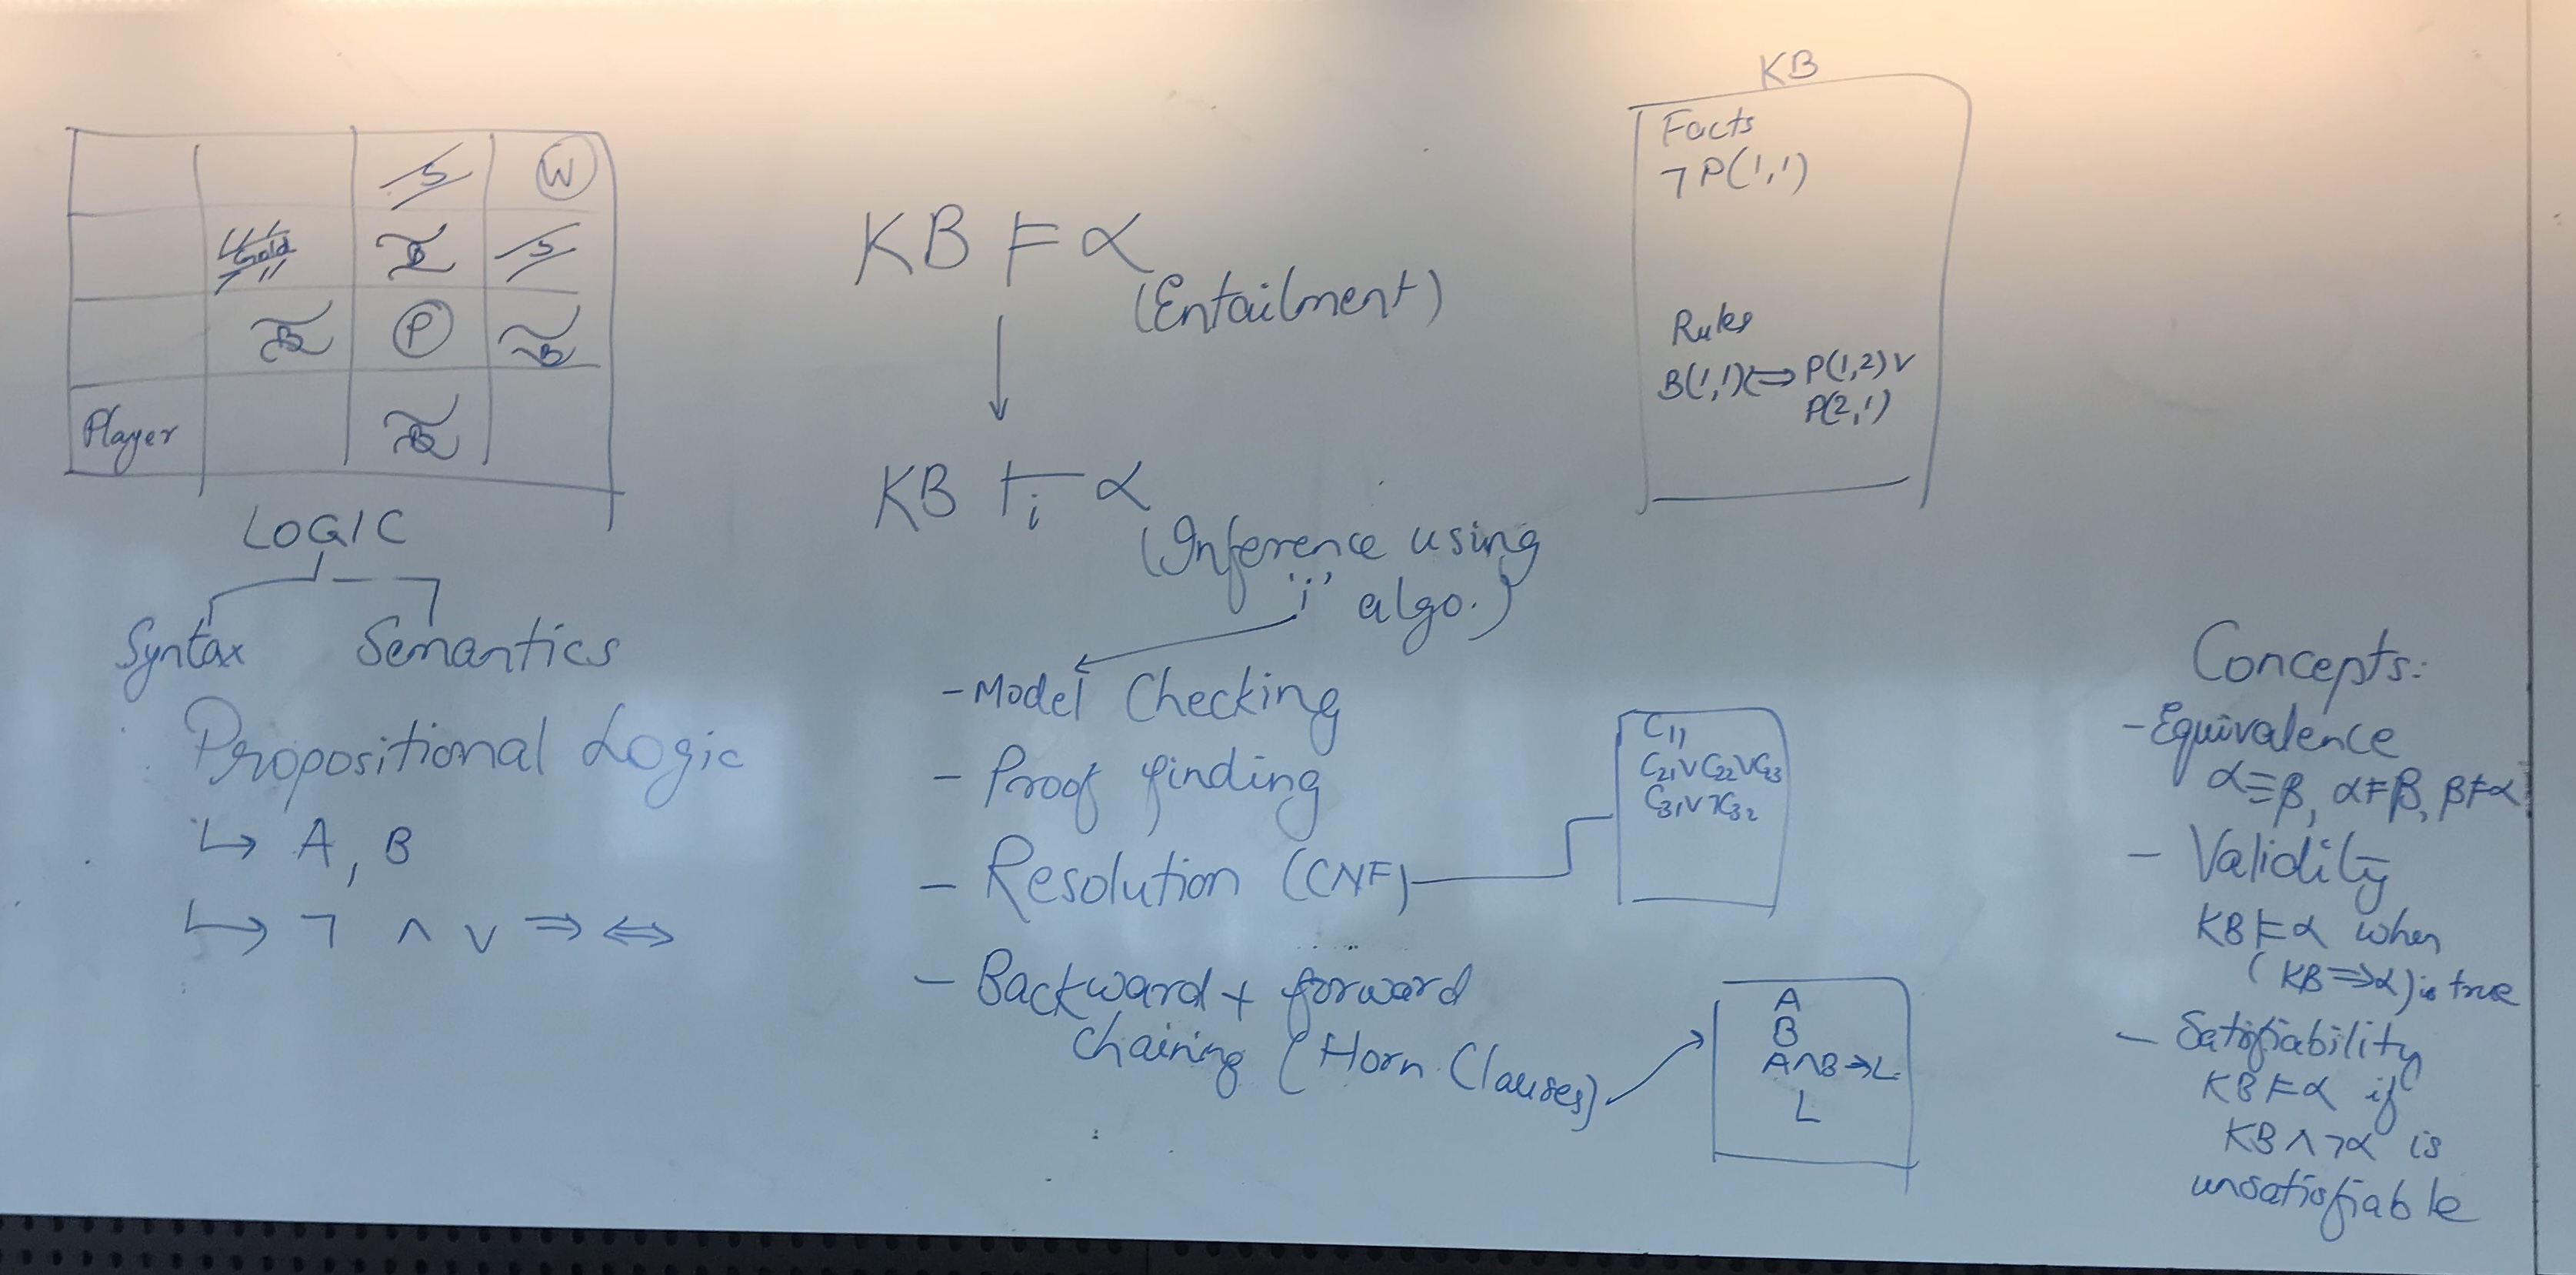 S W
Gold B S
B P B
Player B
LOGIC
Syntax Semantics
Propositional Logic
↳ A, B
↳ ¬ ∧ ∨ ⇒ ⇔
KB ⊨ α
(Entailment)
KB ⊢i α
(Inference using
'i' algo.)
- Model Checking
- Proof finding
- Resolution (CNF)
- Backward + forward
chaining (Horn Clauses)
KB
Facts
¬P(1,1)
Rules
B(1,1) ⇔ P(1,2) ∨
P(2,1)
C11
C21 ∨ C22 ∨ C23
C31 ∨ ¬C32
A
B
A∧B→L
L
Concepts:
- Equivalence
α≡β, α⊨β, β⊨α
- Validity
KB⊨α when
(KB⇒α) is true
- Satisfiability
KB⊨α if
KB∧¬α is
unsatisfiable